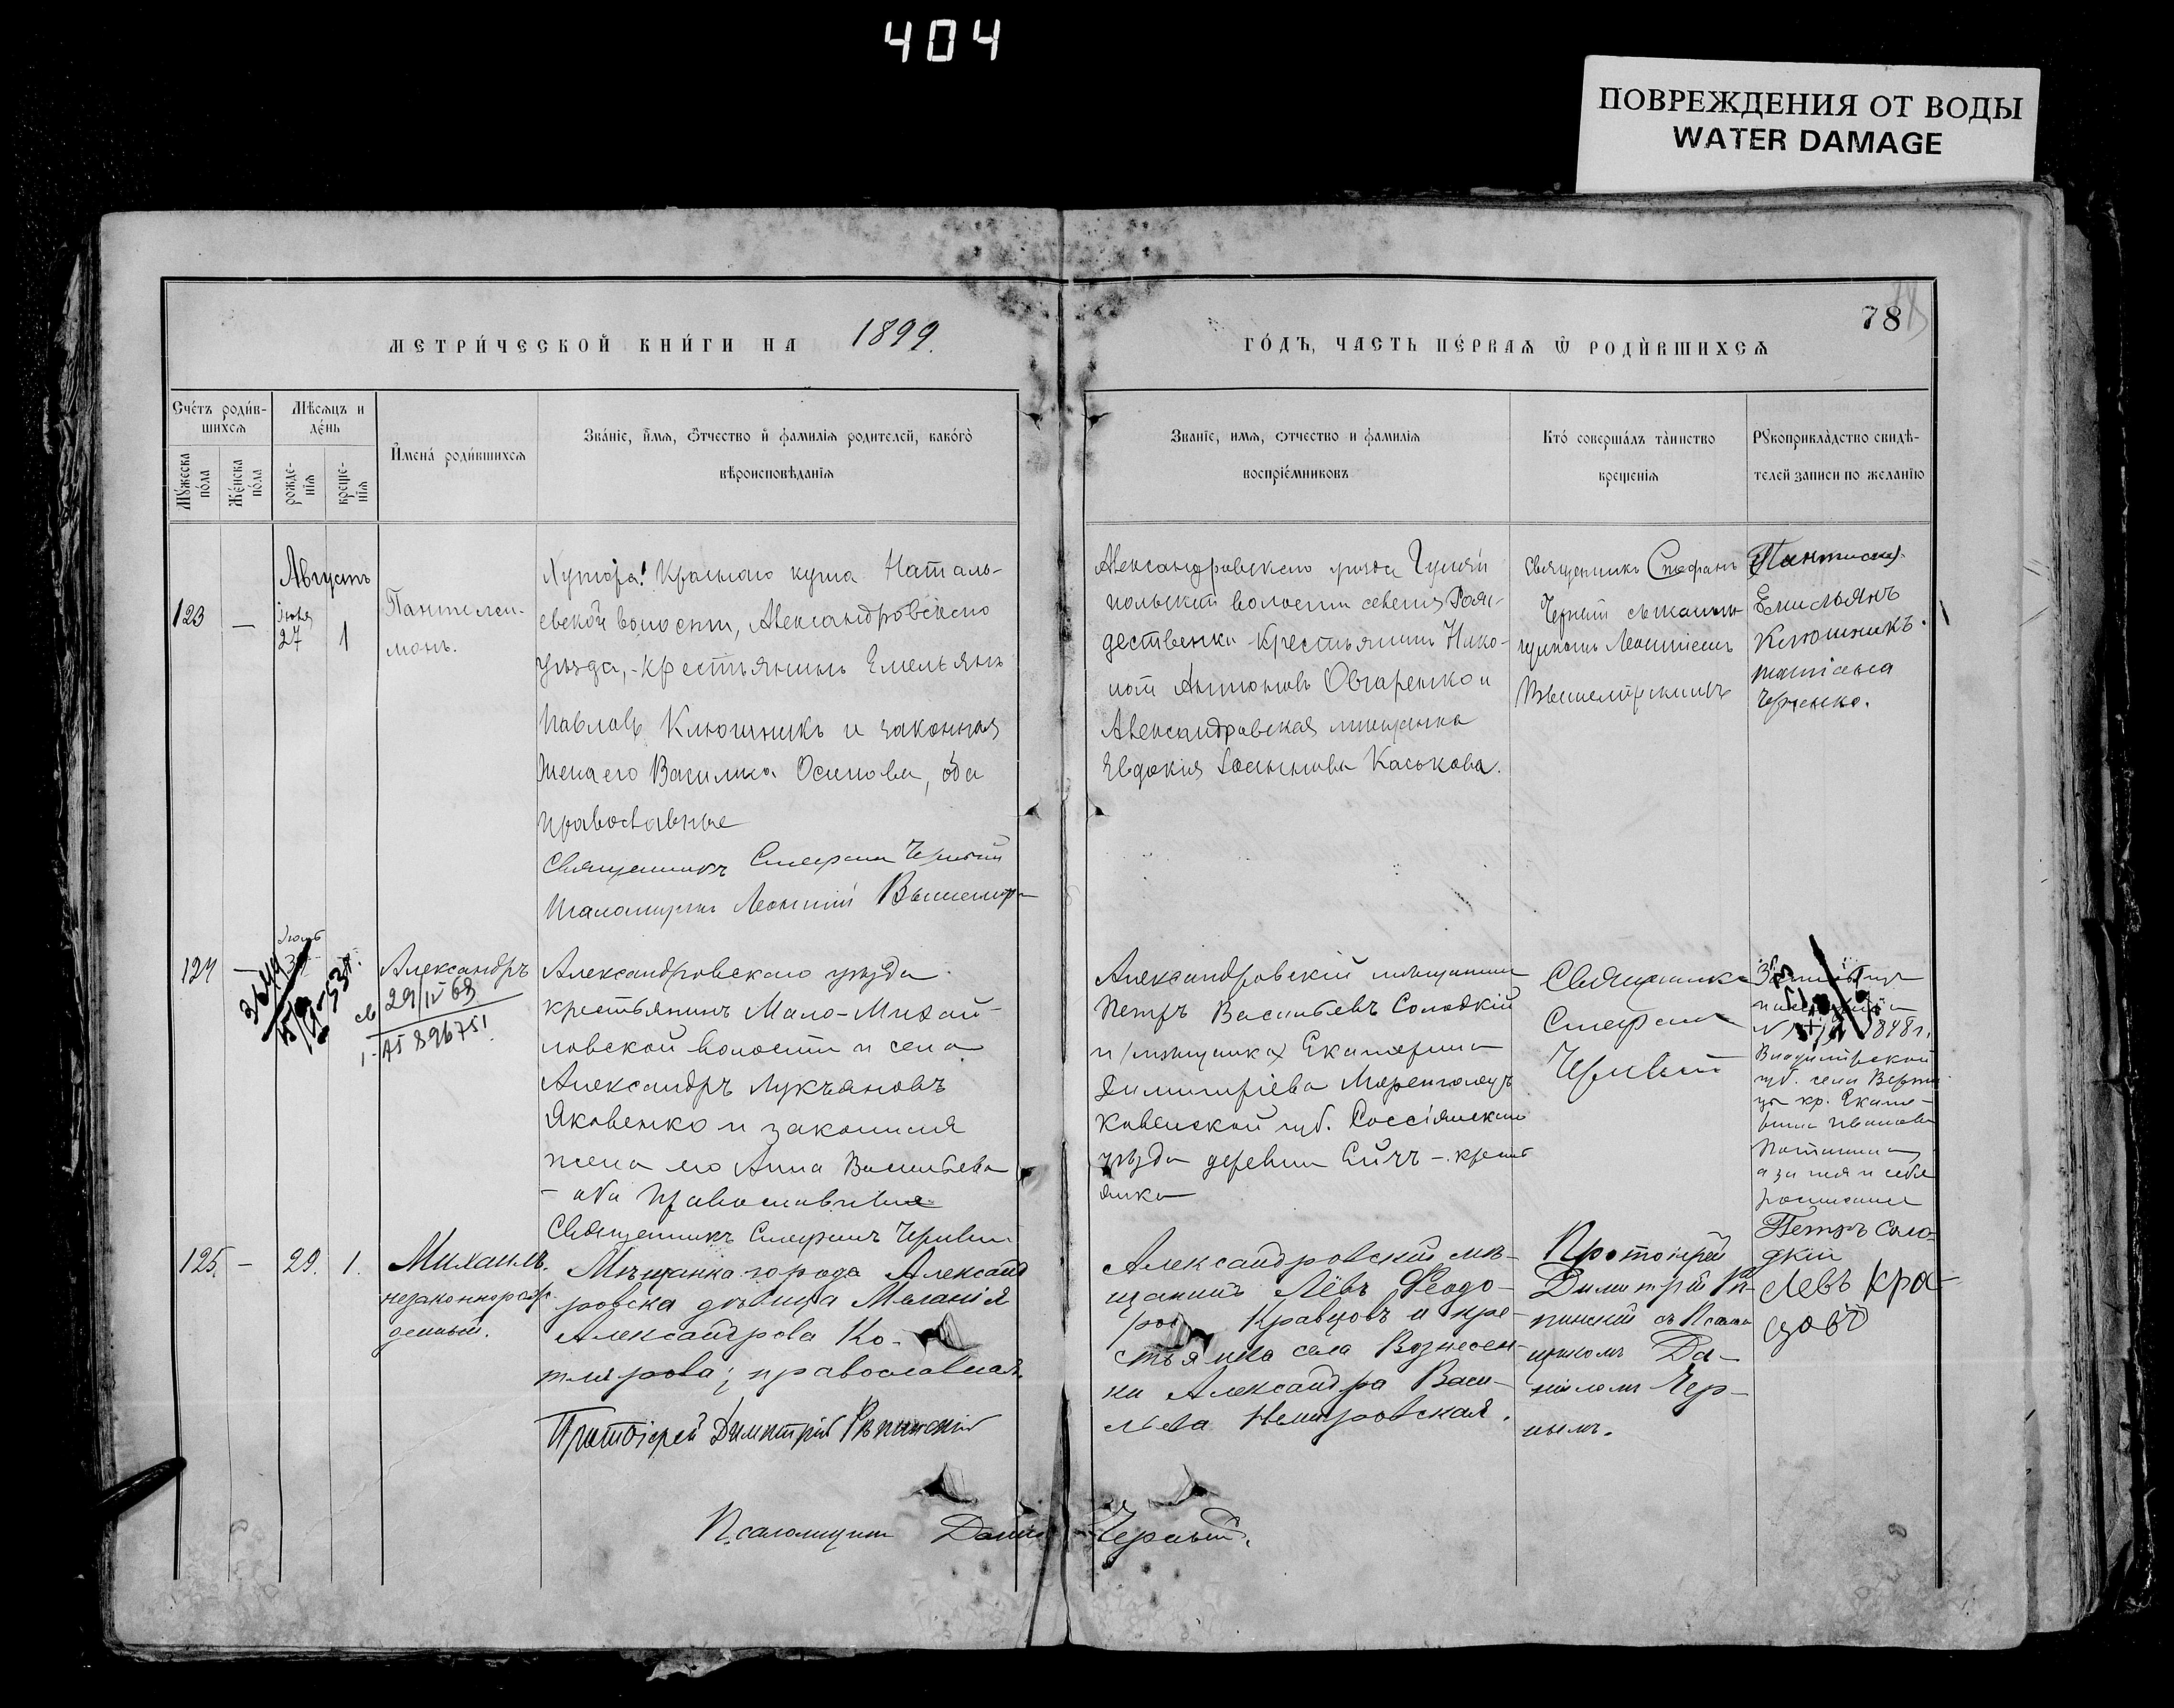 404
ПОВРЕЖДЕНИЯ ОТ ВОДЫ
WATER DAMAGE
78
МЕТРИ́ЧЕСКОЙ КНИ́ГИ НА 1899.
ГО́ДЪ, ЧАСТЬ ПЕ́РВАѦ Ѿ РОДИ́ВШИХСѦ
Сче́тъ роди́в-
шихсѧ
Мѣ́сѧцъ и
де́нь
Мꙋ́жеска
по́ла
Же́нска
по́ла
рожде-
нїѧ
креще-
нїѧ
И҆мена̀ роди́вшихсѧ
Зва́нїе, и҆́мѧ, ѻ҆́тчество и҆ фамилїѧ родителей, како́гѡ
вѣроисповѣ́данїѧ
Званїе, имѧ, ѻтчество и фамилїѧ
воспрїе́мниковъ
Кто́ соверша́лъ та́инство
крещенїѧ
Рꙋкоприкла́дство свидѣ-
телей записи по желанїю
Августъ
123
—
Іюля
27
1
Пантелеи-
монъ.
Хутора Краснаго кута Наталь-
евской волости, Александровскаго
уѣзда, - крестьянинъ Емельянъ
Павловъ Клюшникъ и законная
жена его Василиса Осипова, оба
православные
Священникъ Стефанъ Черный
Псаломщикъ Леонтій
Александровскаго уѣзда Гуляй
польской волости селенія Рож-
дественки крестьянинъ Нико-
лай Антоновъ Овчаренко и
Александровская мѣщанка
Евдокія Каськова.
Священникъ Стефанъ
Черный съ псалом-
щикомъ Леонтіемъ
Емильянъ
Клюшникъ.
124
—
Александръ
св 29/IV 69
I-АЯ 896751
Александровскаго уѣзда
крестьянинъ Мало-Михай-
ловской волости и села
Александръ Лукъяновъ
Яковенко и законная
жена его Анна Васильева
- оба православные
Священникъ Стефанъ Черный
Александровскій мѣщанинъ
Петръ Васильевъ Солодкій
и (мѣщанка) Екатерина
Димитріева
Ковенской губ. Россіянскаго
уѣзда деревни - крестъ
янка
Священникъ
Стефанъ
Черный
1848 г.
Владимірской
губ. села
кр. Екате-
рина Иванова
а за нея и себя
росписался
Петръ Соло-
дкій
125.
—
29.
1.
Михаилъ.
незаконнорож-
денный.
Мѣщанка города Александ
ровска дѣвица Меланія
Александрова Ко-
тлярова; православная.
Протоіерей Димитрій Рѣпинскій
Александровскій мѣ-
щанинъ Левъ Ѳеодо-
ровъ Кравцовъ и кре-
стьянка села Вознесен-
ки Александра Васи-
льева
Протоіерей
Димитрій Рѣ-
пинскій съ Псалом
щикомъ Да-
ніиломъ Чер-
нымъ.
Левъ Кра-
цовъ
Псаломщикъ Даніилъ Черный.